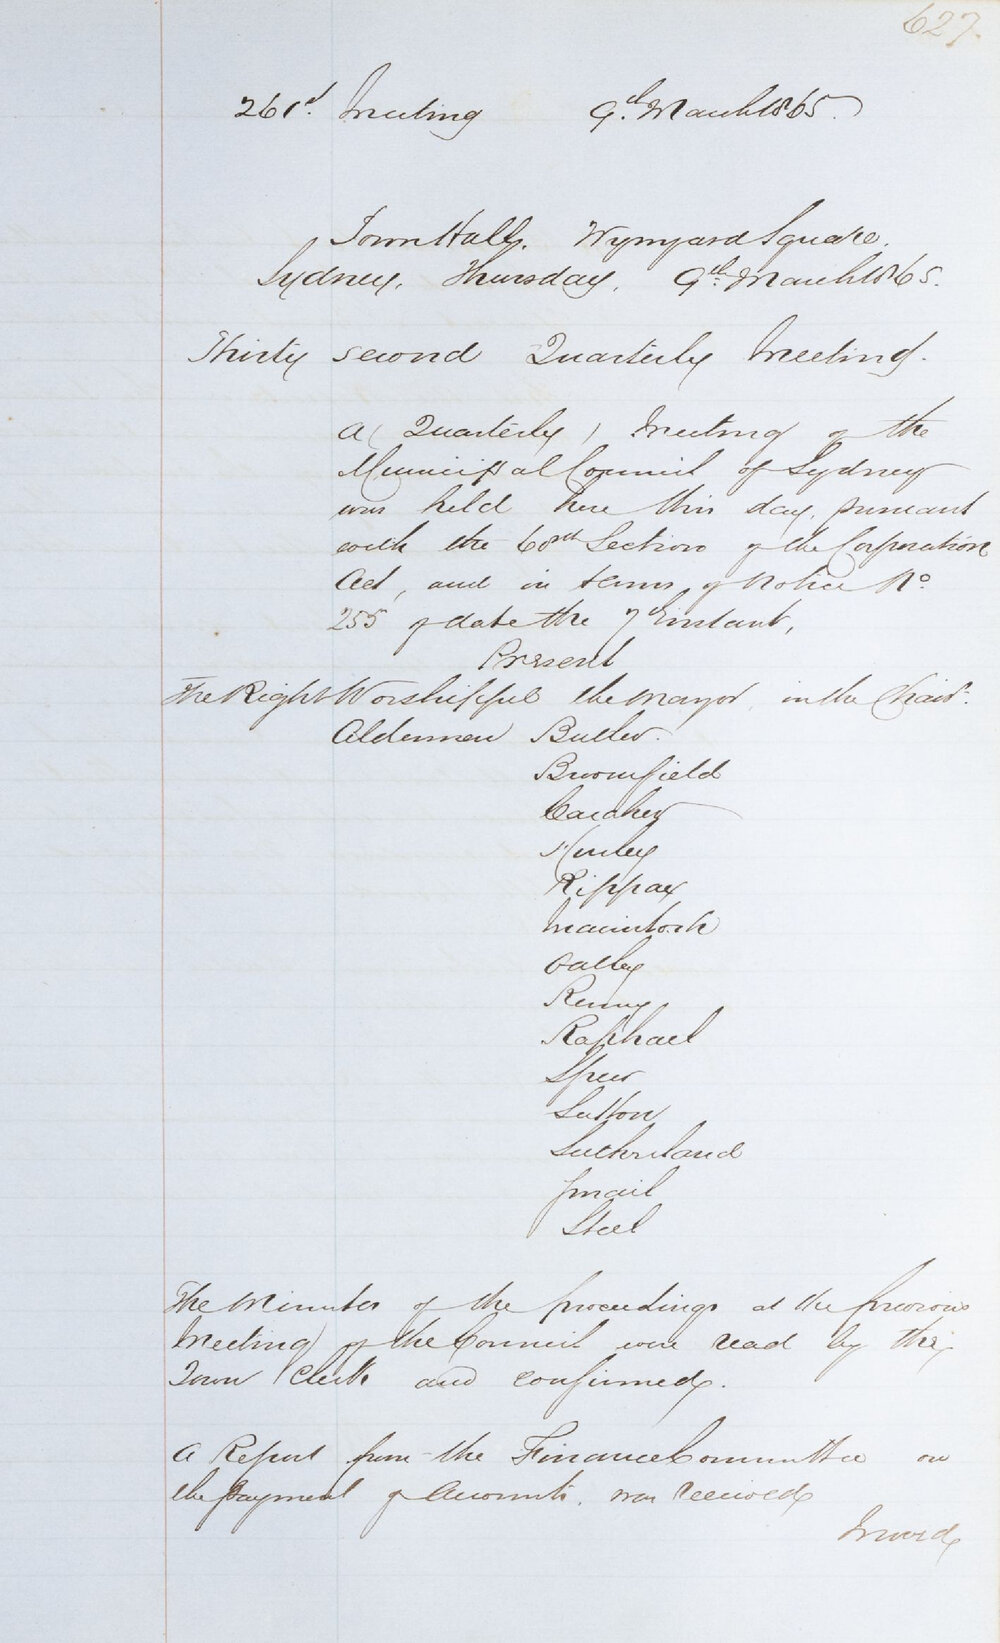 627.
261st. Meeting 9th. March 1865.
Town Hall, Wynyard Square.
Sydney, Thursday, 9th. March 1865.
Thirty second Quarterly Meeting.
A (Quarterly) Meeting of the
Municipal Council of Sydney
was held here this day, pursuant
with the 60th Section of the Corporation
Act, and in terms of Notice No.
255 of date the 7th instant,
Present
The Right Worshipful the Mayor, in the Chair.
Aldermen Butler.
Broomfield
Caraher
Hurley
Kippax
Macintosh
Oatley
Renny
Raphael
Speer
Sutton
Sutherland
Smail
Steel
The Minutes of the proceedings at the previous
Meeting of the Council were read by the
Town Clerk and confirmed.
A Report from the Finance Committee on
the payment of Accounts, was received
Moved